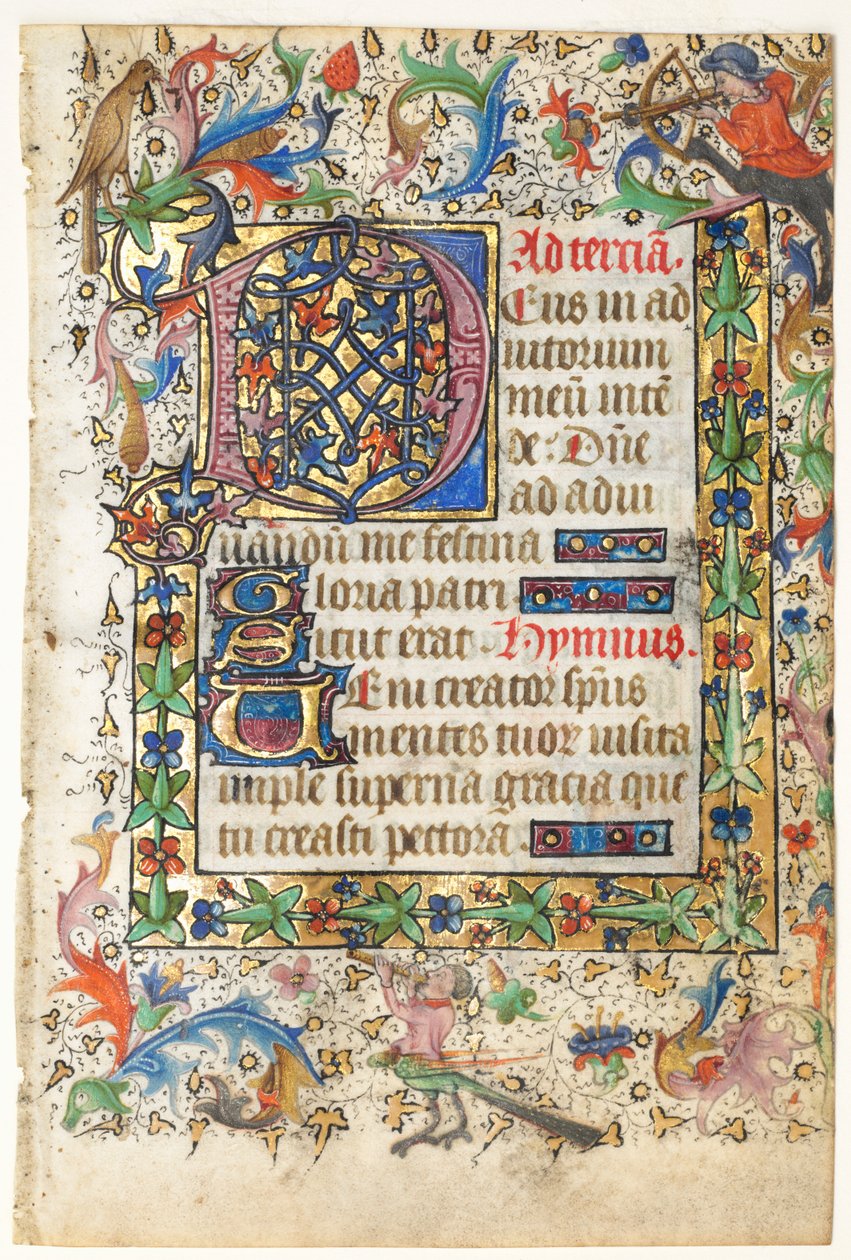 Ad terciã.
DEus in ad
iutorium
meũ intẽ
de: Dñe
ad adiu
uandũ me festina
Gloria patri
Sicut erat. Hymnus.
VEni creator sp̃us
mentes tuoꝝ uisita
imple superna gracia que
tu creasti pectora